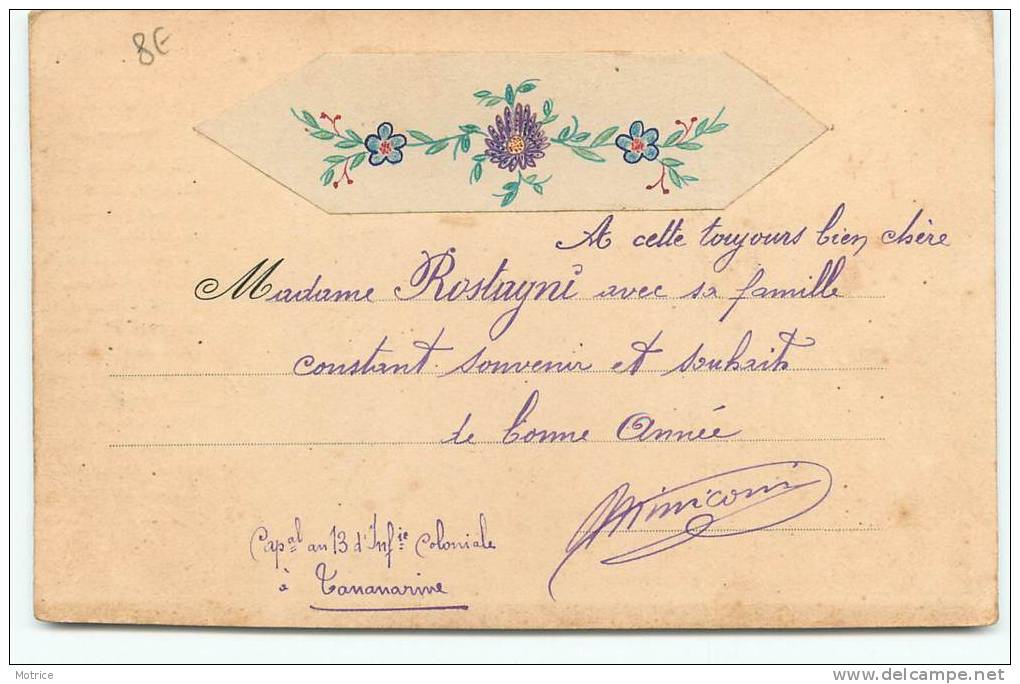 8€
A cette toujours bien chère
Madame Rostagni avec sa famille
constant souvenir et souhaits
de bonne Année
Miniconi
Cap.al au 13 d'Inf.ie Coloniale
à Tananarive
Motrice
www.delcampe.net